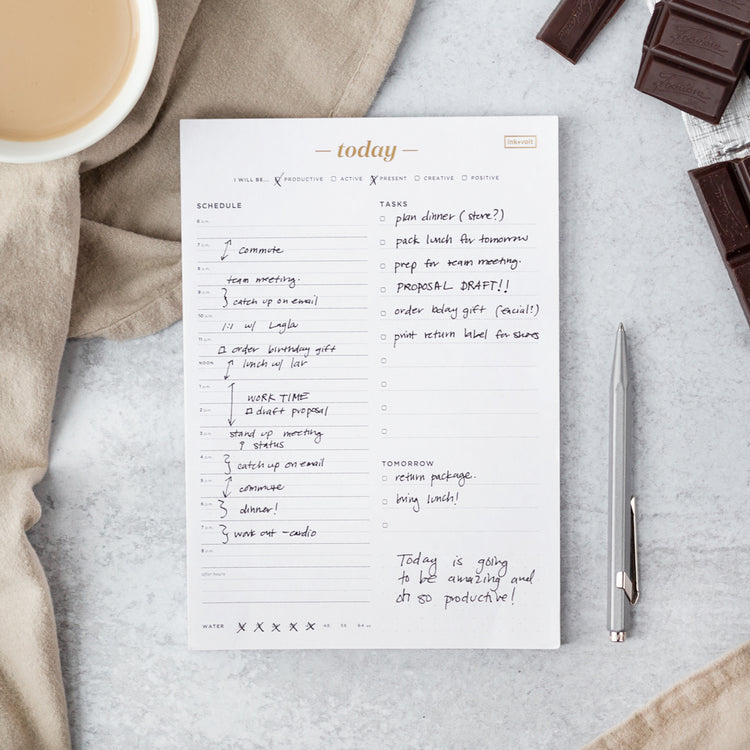 today
ink+volt
I WILL BE... PRODUCTIVE ACTIVE PRESENT CREATIVE POSITIVE
SCHEDULE
6 a.m.
7 a.m.
commute
8 a.m.
team meeting.
9 a.m.
catch up on email
10 a.m.
1:1 w/ Layla
11 a.m.
order birthday gift
NOON
lunch w/ lar
1 p.m.
WORK TIME
2 p.m.
draft proposal
3 p.m.
stand up meeting
↑ status
4 p.m.
catch up on email
5 p.m.
commute
6 p.m.
dinner!
7 p.m.
work out - cardio
8 p.m.
after hours
WATER X X X X X 48 56 64 oz
TASKS
plan dinner (store?)
pack lunch for tomorrow
prep for team meeting.
PROPOSAL DRAFT!!
order bday gift (facial!)
print return label for shoes
TOMORROW
return package.
bring lunch!
Today is going
to be amazing and
oh so productive!